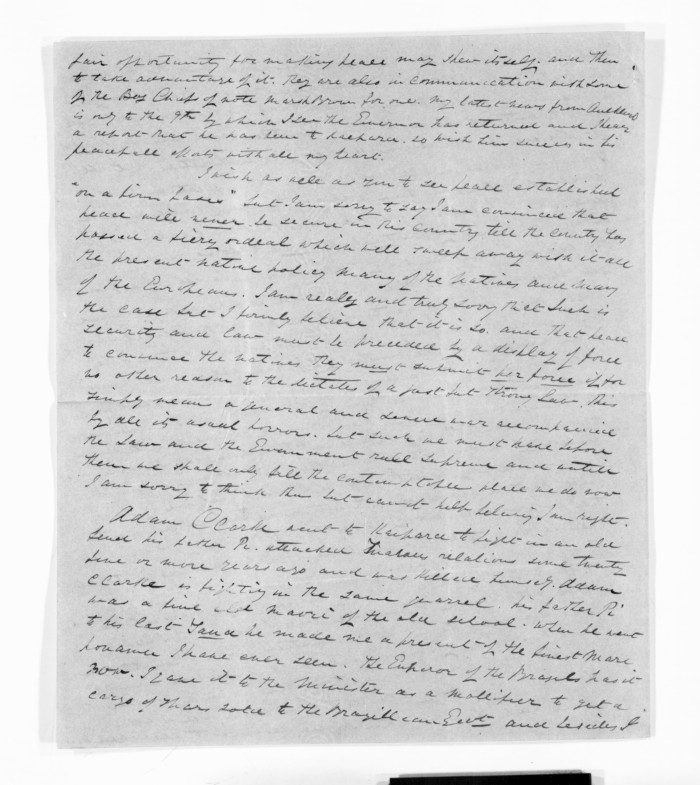 fair opportunity for making peace may shew itself. and then
to take advantage of it. They are also in communication with some
of the Boy Chiefs of note Marsh Brown for one. my latest news from Auckland
is only to the 9th by which I see the Governor has returned and I hear
a report that he has been to Kaipara. so wish him success in his
peacefull efforts with all my heart.
I wish as well as you to see peace established
"on a firm basis" but I am sorry to say I am convinced that
peace will never be secure in this country till the country has
passed a fiery ordeal which will sweep away with it all
the present native policy many of the natives and many
of the Europeans. I am really and truly sorry that such is
the case but I firmly believe that it is so. and that peace
security and law must be preceded by a display of force
to convince the natives they must submit per force if for
no other reason to the dictates of a just but strong law. this
simply means a general and severe war accompanied
by all its usual horrors. but such we must have before
the Law and the Government rule supreme and untill
then we shall only fill the contemptible place we do now
I am sorry to think thus but cannot help believing I am right.
Adam Clarke went to Kaipara to fight in an old
feud his father Pi. attacked relations some twenty
five or more years ago and was killed himself. Adam
Clarke is fighting in the same quarrel. his father Pi
was a fine old maori of the old school. when he went
to his last Taua he made me a present of the finest Mari
pounamu I have ever seen. the Emperor of the Brazils has it
now. I gave it to the minister as a mollifier to get a
cargo of spars sold to the Brazillean Govt and besides I